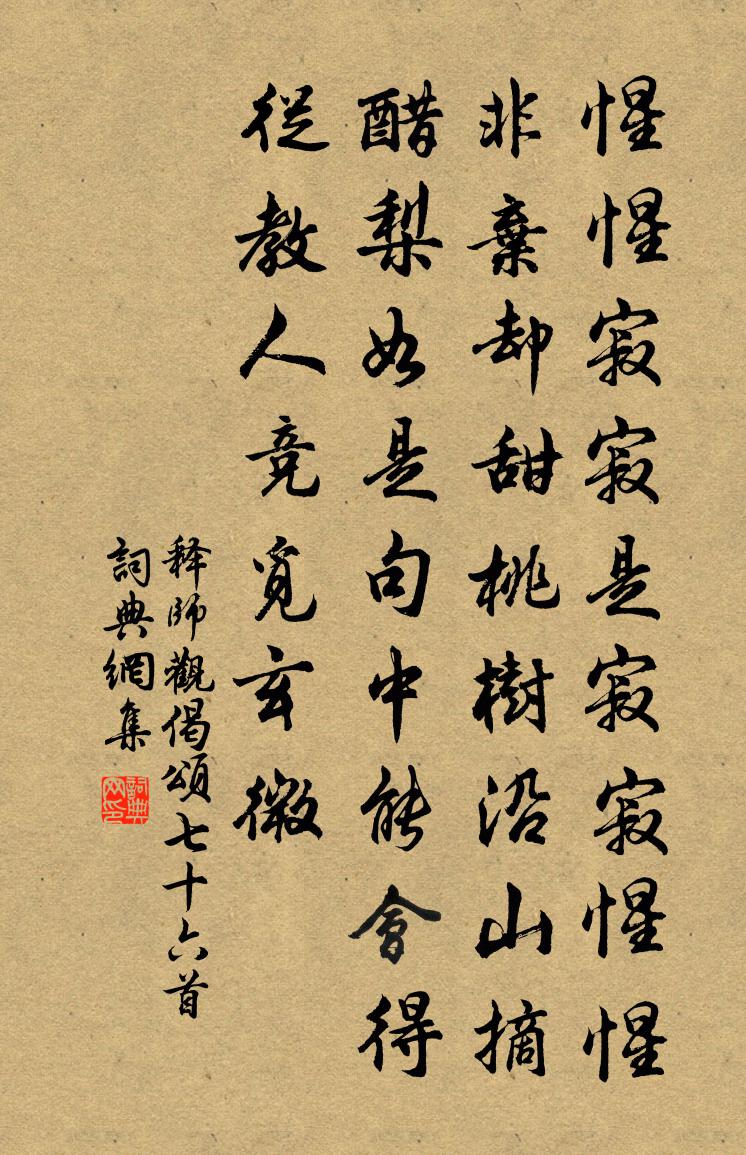 惺惺寂寂是寂寂惺惺
非棄却甜桃樹沿山摘
醋梨如是句中能會得
從教人竞覓玄微
释師觀偈頌七十六首
詞典網集
詞典
网印